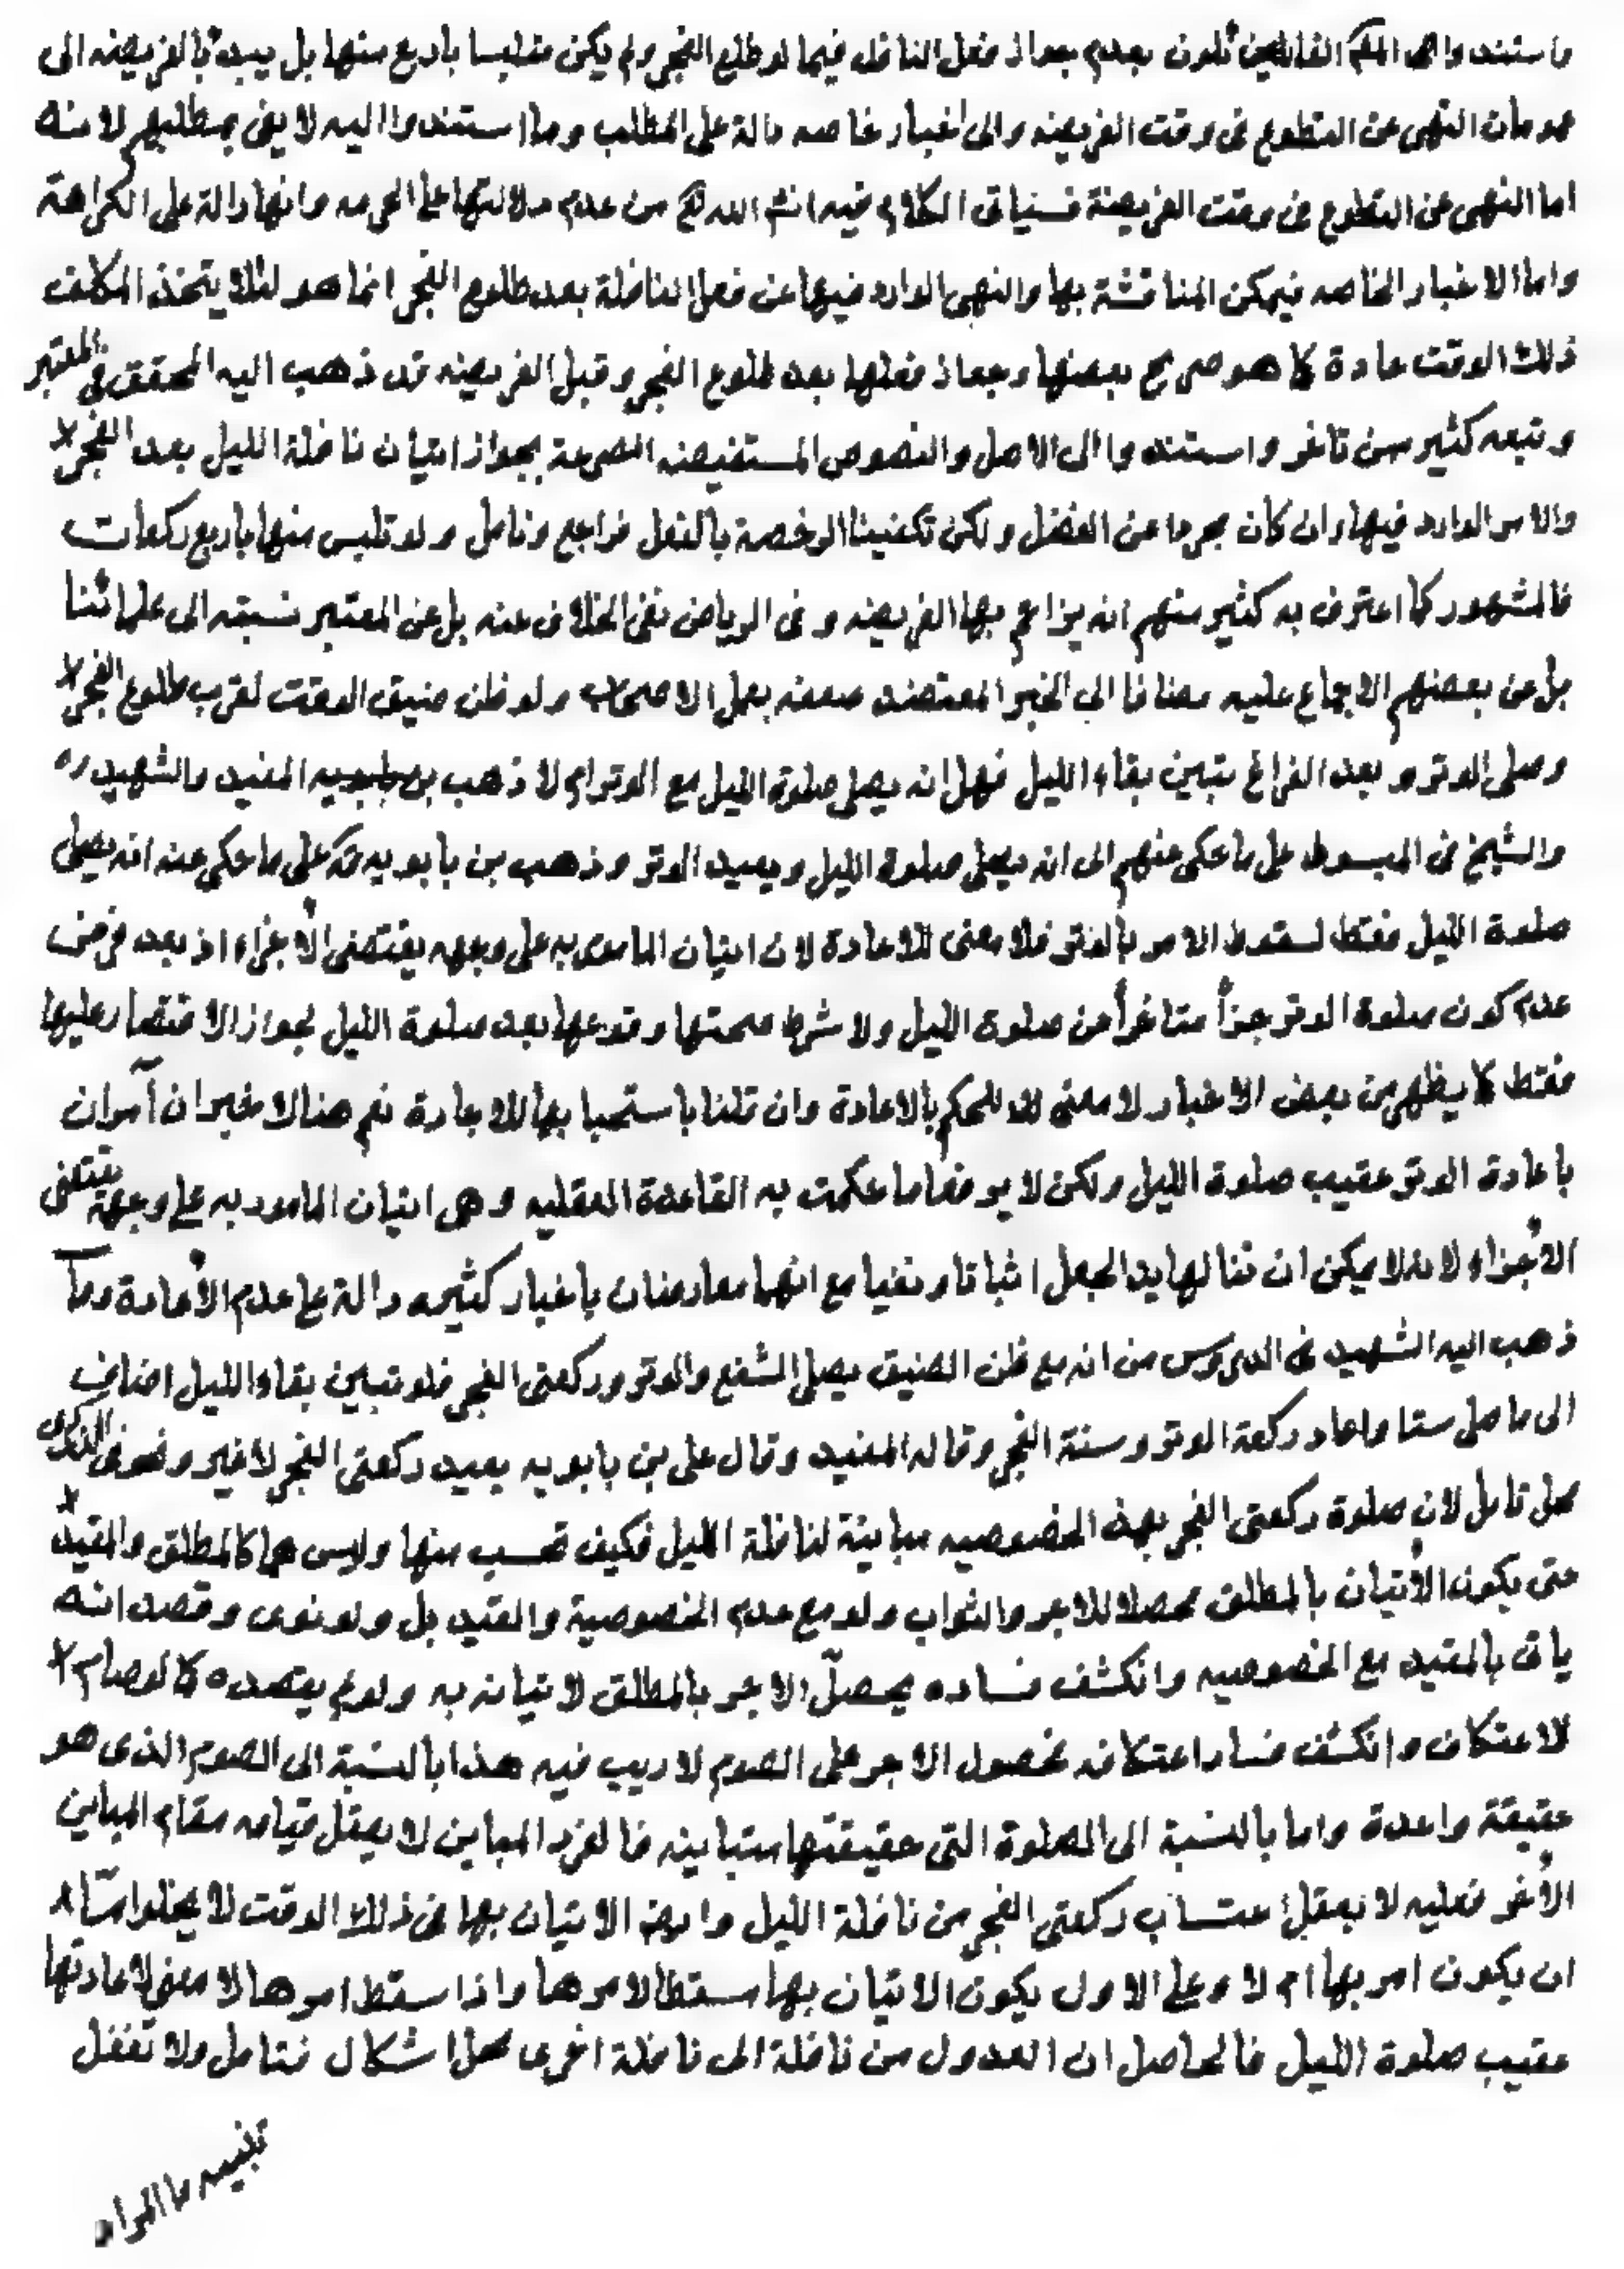 واستندوا القائلين بعدم جواز فعل النافلة فيما لو طلع الفجر ولم يكن متلبسا باربع منها بل يبدء بالفريضه الى
عمومات النهى عن التطوع فى وقت الفريضه والى اخبار خاصه دالة على المطلب وما استندوا اليه لا يفى بمطلبهم لانه
اما النهى عن التطوع فى وقت الفريضة فسياتى الكلام فيه انشا الله تع من عدم دلالتها على الحرمه وانها دالة على الكراهة
واما الاخبار الخاصه فيمكن المناقشة بها والنهى الوارد فيها عن فعل النافلة بعد طلوع الفجر انما هو لئلا يتخذ المكلف
ذلك الوقت عادة كما هو صريح بعضها وجواز فعلها بعد طلوع الفجر وقبل الفريضه قد ذهب اليه المحقق فى المعتبر
وتبعه كثير من تاخر واستندوا الى الاصل والنصوص المستفيضه المصرحة بجواز اتيان نافلة الليل بعد الفجر
والامر الوارد فيها وان كان مجردا عن الفضل ولكن تكفينا الرخصة بالفعل فراجع وتامل ولو تلبس منها باربع ركعات
فالمشهور كما اعترف به كثير منهم انه يزاحم بها الفريضه وفى الرياض نفى الخلاف عنه بل عن المعتبر نسبته الى علمائنا
بل عن بعضهم الاجماع عليه مضافا الى الخبر المعتضد ضعفه بعمل الاصحاب ولو ظن ضيق الوقت لقرب طلوع الفجر
وصلى الوتر وبعد الفراغ تبين بقاء الليل فهل انه يصلى صلوة الليل مع الوتر ام لا ذهب المفيد والشهيد ره
والشيخ فى المبسوط على ما حكى عنهم الى ان يصلى صلوة الليل ويعيد الوتر وذهب بن بابويه على ما حكى عنه انه يصلى
صلوة الليل فقط لسقوط الامر بالوتر فلا معنى للاعادة لان اتيان المامور به على وجهه يقتضى الأجزاء اذ بعد فرض
عدم كون صلوة الوتر جزأً متاخراً من صلوة الليل ولا شرط صحتها وقوعها بعد صلوة الليل لجواز الاقتصار عليها
فقط كما يظهر من بعض الاخبار لا معنى للحكم بالاعادة وان قلنا باستحبابها للاعادة نعم هنالا خبران آمران
باعادة الوتر عقيب صلوة الليل ولكن لا يرفعا ما حكمت به القاعدة العقليه وهى اتيان المامور به على وجهه يقتضى
الأجزاء لانه لا يمكن ان تنالها يد الجعل اثباتا ونفيا مع انهما معارضان باخبار كثيره دالة على عدم الأعادة وما
ذهب اليه الشهيد فى الدروس من انه مع ظن الضيق يصلى الشفع والوتر وركعتى الفجر فلو تبين بقاء الليل اضاف
الى ما صلى ستا واعاد ركعة الوتر وسنة الفجر وقاله المفيد وقال على بن بابويه يعيد ركعتى الفجر لاغير ونحوه فى الذكرى
محل تامل لان صلوة ركعتى الفجر بهذه الخصوصيه مباينة لنافلة الليل فكيف تحسب منها وليس هما كالمطلق والمقيد
حتى يكون الأتيان بالمطلق محصلا للاجر والثواب ولو مع عدم الخصوصية والقيد بل ولو نوى وقصد انه
ياتى بالمقيد مع الخصوصيه وانكشف فساده يحصّل الاجر بالمطلق لاتيانه به ولو لم يقصده كما لو صام
للاعتكاف وانكشف فساد اعتكافه فحصول الاجر على الصوم لا ريب فيه هذا بالنسبة الى الصوم الذى هو
حقيقة واحدة واما بالنسبة الى الصلوة التى حقيقتها متباينه فالفرد المباين لا يعقل قيامه مقام المباين
الأخر فعليه لا يعقل احتساب ركعتى الفجر من نافلة الليل وايضا الاتيان بها فى ذلك الوقت لا يخلوا امّا
ان يكون امر بها ام لا وعلى الاول يكون الاتيان بها مسقطا لامرها واذا سقط امرها لا معنى لاعادتها
عقيب صلوة الليل فالحاصل ان العدول من نافلة الى نافلة اخرى محل اشكال فتامل ولا تغفل
تنبيه ما المراد